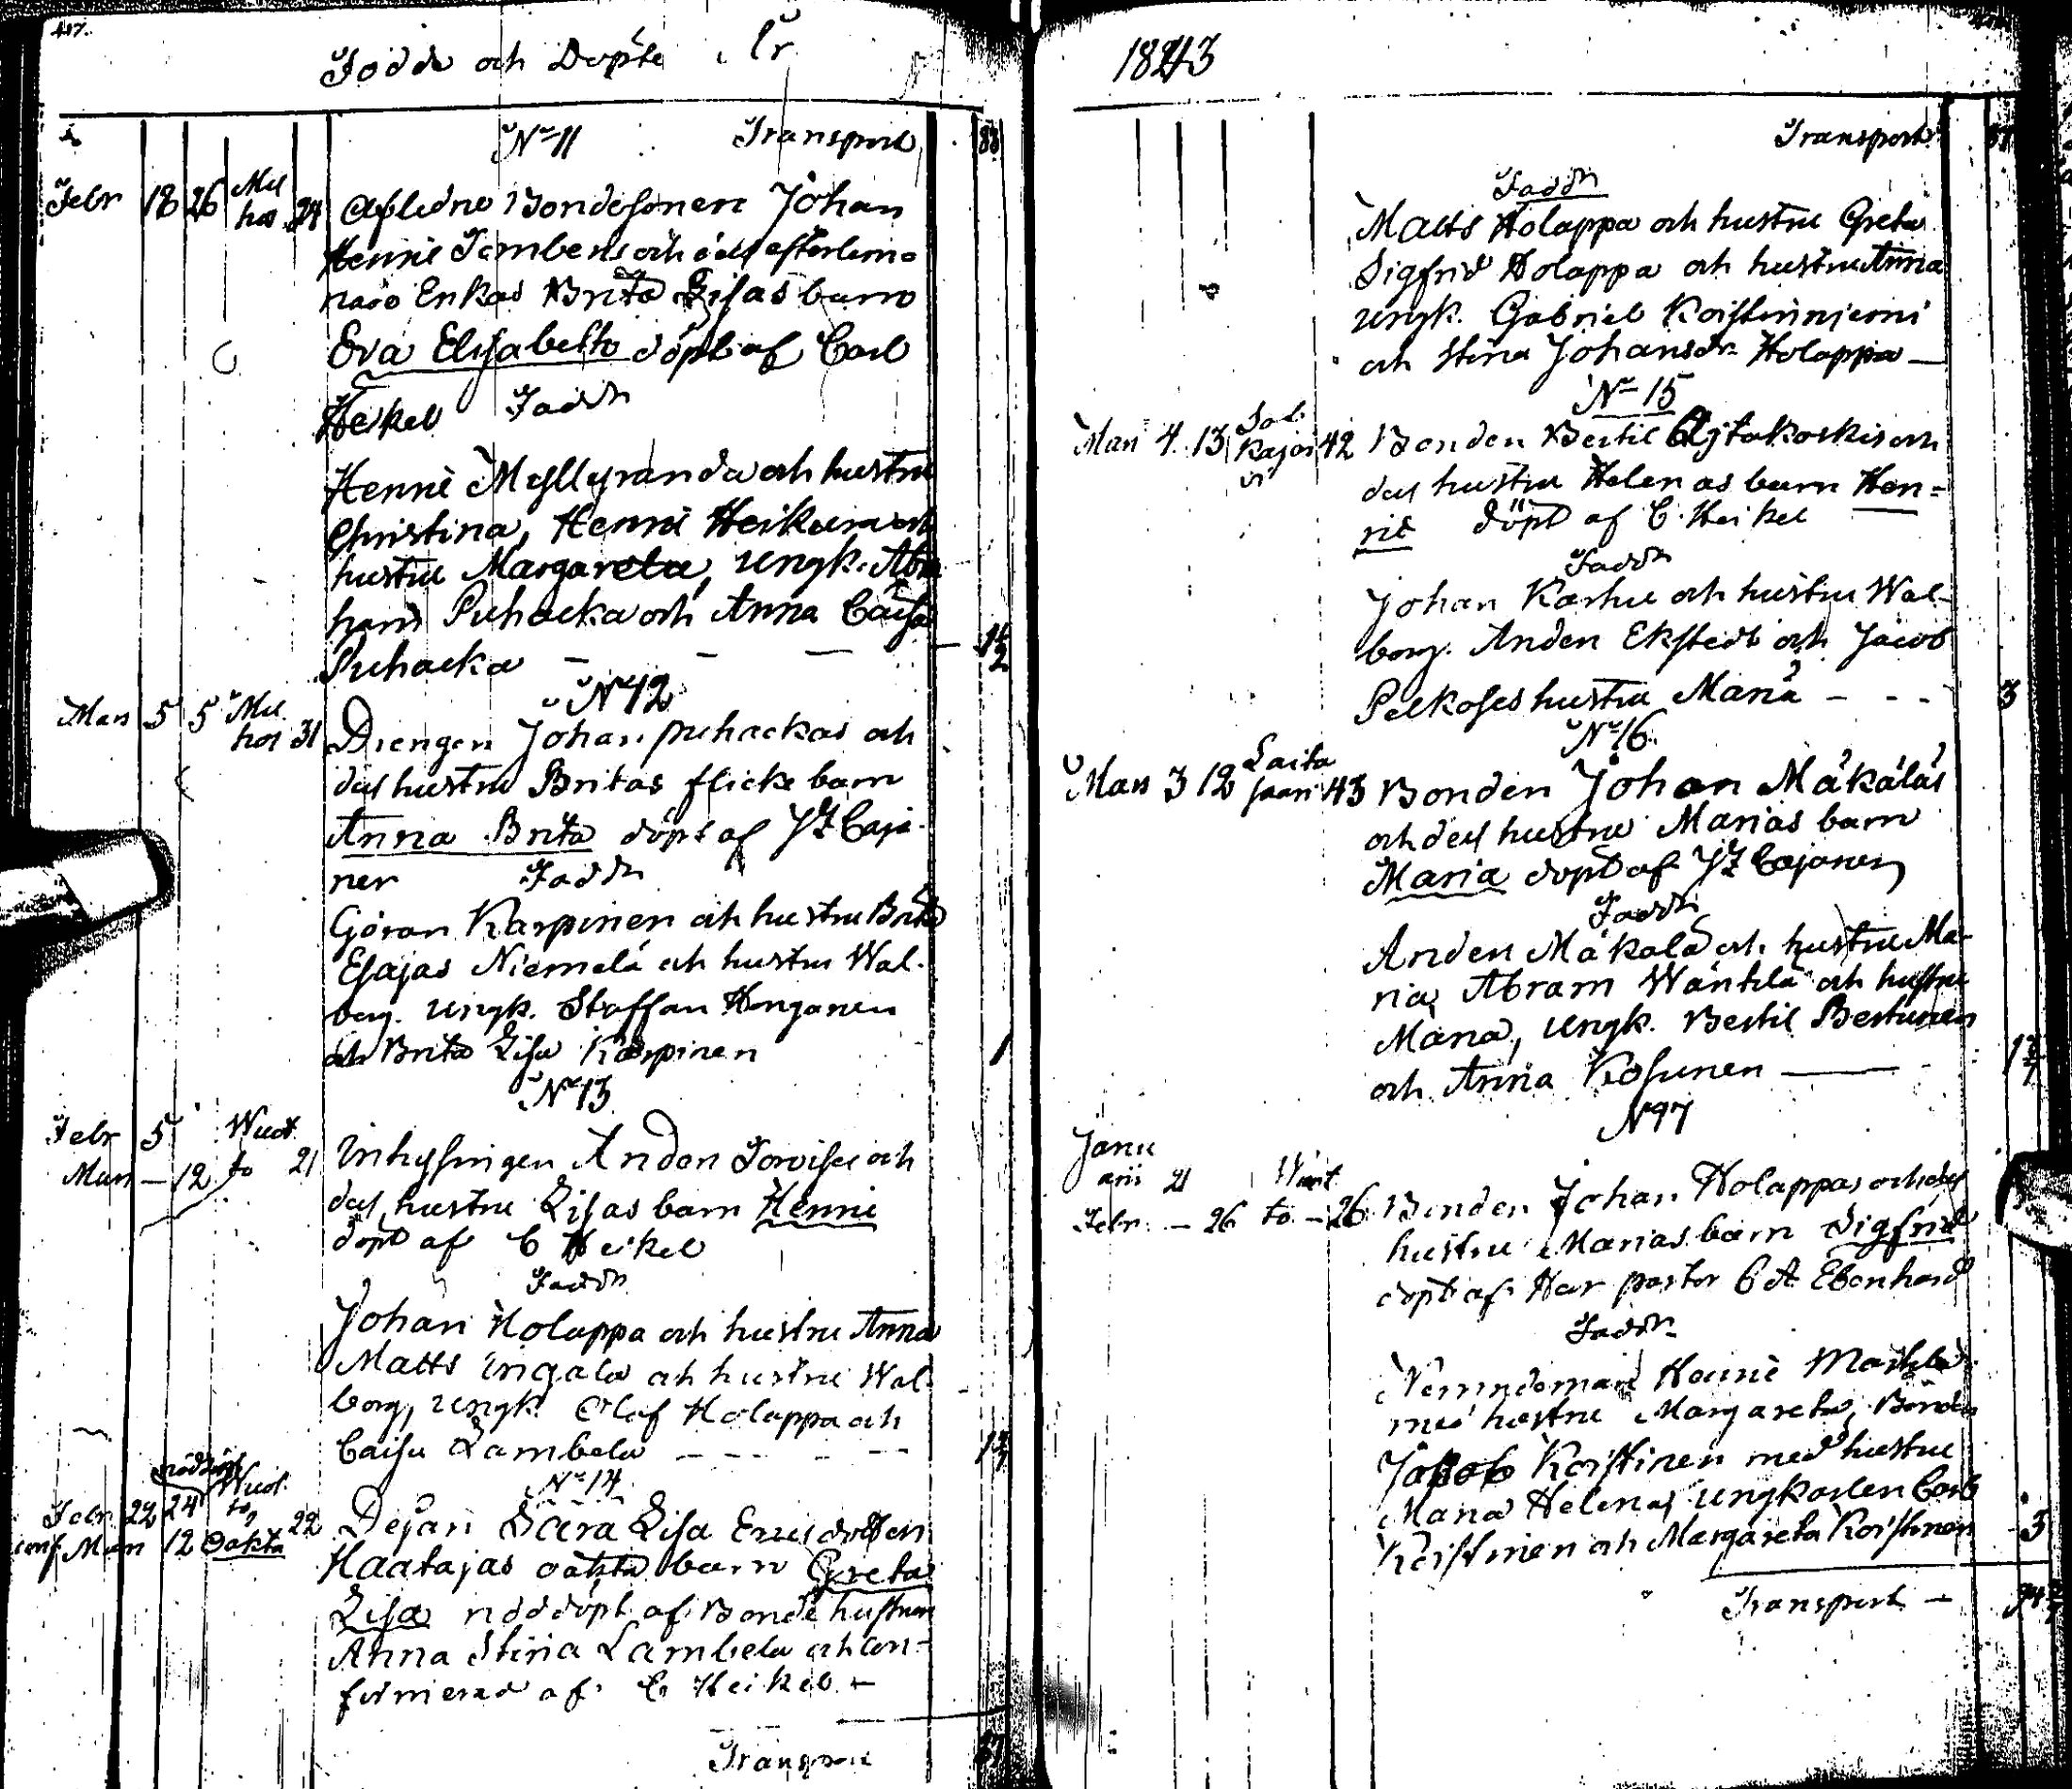 417.
Födde och Döpte År
No 11 Transport 83
Febr 18 26 Mel
hos 24 Aflidne Bondesonen Johan
Henric Lambelas och dess efterlem=
nade Enkas Brita Lisas barn
Eva Elisabeth döpt af Carl
Heikel Faddr
Henric Myllyranda och hustru
Christina, Henric Heikura och
hustru Margareta, ungk. Abra
ham Puhacka och Anna Caisa
Puhacka — — —
No 12
Mars 5 5 Mel
hos 31 Drengen Johan puhackas och
dess hustru Britas flicke barn
Anna Brita döpt af Caja
ner Faddr
Göran Karpinen och hustru Brita
Esajas Niemelä och hustru Wal
borg. ungk. Staffan Honganen
och Brita Lisa Karpinen 1
No 13
Febr 5 Wuot
Mars — 12 to 21 Inhysingen Anders Torvises och
dess hustru Lisas barn Henric
döpt af C Heikel
Faddr
Johan Holappa och hustru Anna
Matts Ingala och hustru Wal
borg, ungk. Olof Holappa och
Caisa Lambela — — — —
No 14
nöddöpt Wuot
Febr 22 24 to 22 Pejan Sara Lisa Ersdotter
conf Mars 12 oäkta Haatajas oäkta barn Greta
Lisa nöddöpt af Bonde hustrun
Anna Stina Lambela och con=
firmerad af C Heikel —
Transport
1843
Transport
Faddr
Matts Holappa och hustru Greta
Sigfrid Holappa och hustru Anna
ungk. Gabriel Koistinniemi
och Stina Johansdr Holappa —
No 15
Mars 4 13 Kajan 42 Bonden Bertil Ajtokoskis och
dess hustru Helenas barn Hen=
ric döpt af C. Heikel
Faddr
Johan Karhu och hustru Wal
borg. Anders Ekstedt och Jacob
Pelkoses hustru Maria — — - 3
No 16
Mars 3 12 Laita
saari 43 Bonden Johan Mäkäläs
och dess hustru Marias barn
Maria döpt af Cajaner
Faddr
Anders Mäkälä och hustru Ma-
ria, Abram Wänttilä och hustru
Maria, ungk. Bertil Bertunen
och Anna Kosunen —
No 17
Janu
arii 21 Wuot
Febr. — 26 to — 26 Bonden Johan Holappas och dess
hustru Marias barn Sigfrid
döpt af Herr pastor C A Eberhard
Faddr
Nemndeman Henric Mattila
med hustru Margareta, Bonden
Jakob Koistinen med hustru
Maria Helena, ungkarlen Carl
Koistinen och Margareta Koistinen 3
Transport —